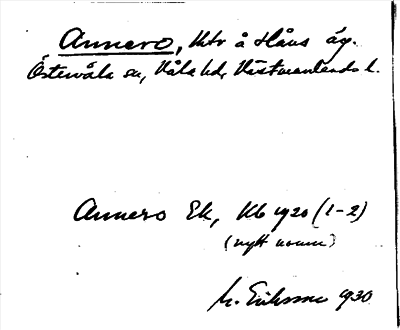 Annero, ktr å Håns äg.
Östervåla sn, Våla hd, Västmanlands l.
Annero Ek, Kb 1920 (1-2)
(nytt namn)
M. Eriksson 1930